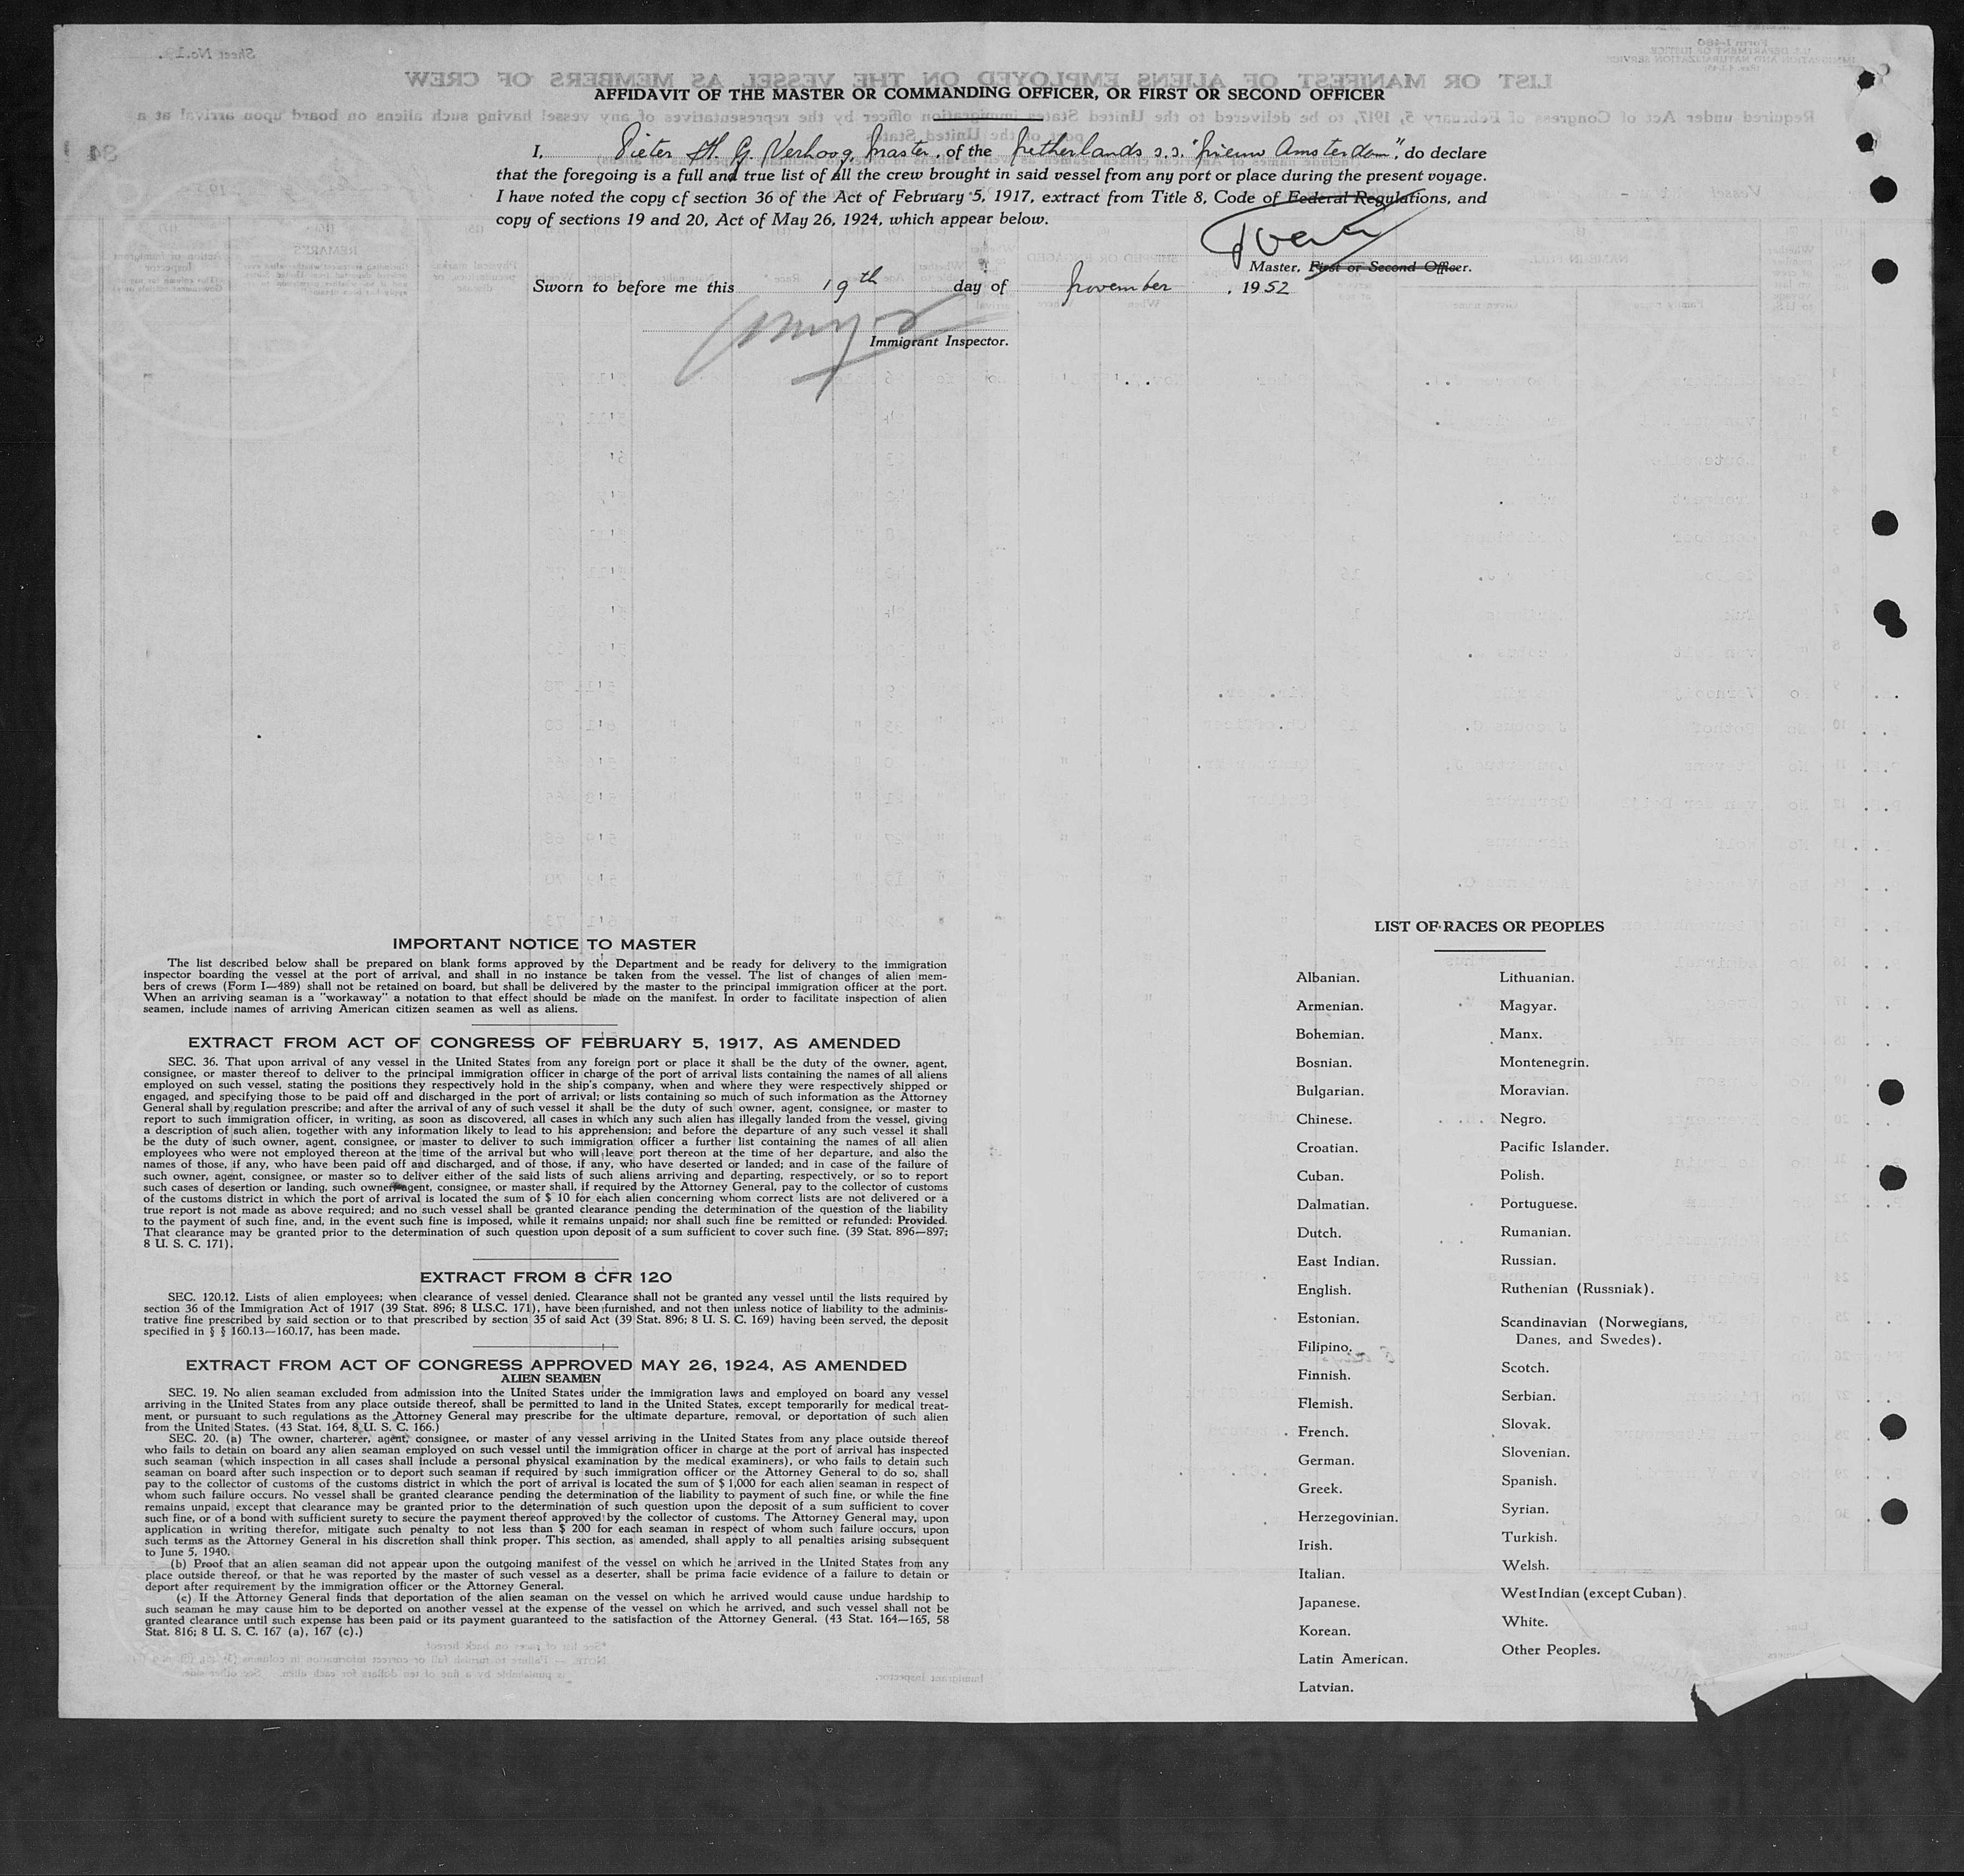 AFFIDAVIT OF THE MASTER OR COMMANDING OFFICER, OR FIRST OR SECOND OFFICER
I, Pieter H. G. Verhoog, Master, of the Netherlands s.s. "Nieuw Amsterdam", do declare
that the foregoing is a full and true list of all the crew brought in said vessel from any port or place during the present voyage.
I have noted the copy of section 36 of the Act of February 5, 1917, extract from Title 8, Code of Federal Regulations, and
copy of sections 19 and 20, Act of May 26, 1924, which appear below.
Master, First or Second Officer.
Sworn to before me this 19th day of November, 1952
Immigrant Inspector.
IMPORTANT NOTICE TO MASTER
The list described below shall be prepared on blank forms approved by the Department and be ready for delivery to the immigration
inspector boarding the vessel at the port of arrival, and shall in no instance be taken from the vessel. The list of changes of alien mem-
bers of crews (Form I—489) shall not be retained on board, but shall be delivered by the master to the principal immigration officer at the port.
When an arriving seaman is a "workaway" a notation to that effect should be made on the manifest. In order to facilitate inspection of alien
seamen, include names of arriving American citizen seamen as well as aliens.
EXTRACT FROM ACT OF CONGRESS OF FEBRUARY 5, 1917, AS AMENDED
SEC. 36. That upon arrival of any vessel in the United States from any foreign port or place it shall be the duty of the owner, agent,
consignee, or master thereof to deliver to the principal immigration officer in charge of the port of arrival lists containing the names of all aliens
employed on such vessel, stating the positions they respectively hold in the ship's company, when and where they were respectively shipped or
engaged, and specifying those to be paid off and discharged in the port of arrival; or lists containing so much of such information as the Attorney
General shall by regulation prescribe; and after the arrival of any of such vessel it shall be the duty of such owner, agent, consignee, or master to
report to such immigration officer, in writing, as soon as discovered, all cases in which any such alien has illegally landed from the vessel, giving
a description of such alien, together with any information likely to lead to his apprehension; and before the departure of any such vessel it shall
be the duty of such owner, agent, consignee, or master to deliver to such immigration officer a further list containing the names of all alien
employees who were not employed thereon at the time of the arrival but who will leave port thereon at the time of her departure, and also the
names of those, if any, who have been paid off and discharged, and of those, if any, who have deserted or landed; and in case of the failure of
such owner, agent, consignee, or master so to deliver either of the said lists of such aliens arriving and departing, respectively, or so to report
such cases of desertion or landing, such owner, agent, consignee, or master shall, if required by the Attorney General, pay to the collector of customs
of the customs district in which the port of arrival is located the sum of $ 10 for each alien concerning whom correct lists are not delivered or a
true report is not made as above required; and no such vessel shall be granted clearance pending the determination of the question of the liability
to the payment of such fine, and, in the event such fine is imposed, while it remains unpaid; nor shall such fine be remitted or refunded: Provided.
That clearance may be granted prior to the determination of such question upon deposit of a sum sufficient to cover such fine. (39 Stat. 896—897;
8 U. S. C. 171).
EXTRACT FROM 8 CFR 120
SEC. 120.12. Lists of alien employees; when clearance of vessel denied. Clearance shall not be granted any vessel until the lists required by
section 36 of the Immigration Act of 1917 (39 Stat. 896; 8 U.S.C. 171), have been furnished, and not then unless notice of liability to the adminis-
trative fine prescribed by said section or to that prescribed by section 35 of said Act (39 Stat. 896; 8 U. S. C. 169) having been served, the deposit
specified in § § 160.13—160.17, has been made.
EXTRACT FROM ACT OF CONGRESS APPROVED MAY 26, 1924, AS AMENDED
ALIEN SEAMEN
SEC. 19. No alien seaman excluded from admission into the United States under the immigration laws and employed on board any vessel
arriving in the United States from any place outside thereof, shall be permitted to land in the United States, except temporarily for medical treat-
ment, or pursuant to such regulations as the Attorney General may prescribe for the ultimate departure, removal, or deportation of such alien
from the United States. (43 Stat. 164, 8 U. S. C. 166.)
SEC. 20. (a) The owner, charterer, agent, consignee, or master of any vessel arriving in the United States from any place outside thereof
who fails to detain on board any alien seaman employed on such vessel until the immigration officer in charge at the port of arrival has inspected
such seaman (which inspection in all cases shall include a personal physical examination by the medical examiners), or who fails to detain such
seaman on board after such inspection or to deport such seaman if required by such immigration officer or the Attorney General to do so, shall
pay to the collector of customs of the customs district in which the port of arrival is located the sum of $ 1,000 for each alien seaman in respect of
whom such failure occurs. No vessel shall be granted clearance pending the determination of the liability to payment of such fine, or while the fine
remains unpaid, except that clearance may be granted prior to the determination of such question upon the deposit of a sum sufficient to cover
such fine, or of a bond with sufficient surety to secure the payment thereof approved by the collector of customs. The Attorney General may, upon
application in writing therefor, mitigate such penalty to not less than $ 200 for each seaman in respect of whom such failure occurs, upon
such terms as the Attorney General in his discretion shall think proper. This section, as amended, shall apply to all penalties arising subsequent
to June 5, 1940.
(b) Proof that an alien seaman did not appear upon the outgoing manifest of the vessel on which he arrived in the United States from any
place outside thereof, or that he was reported by the master of such vessel as a deserter, shall be prima facie evidence of a failure to detain or
deport after requirement by the immigration officer or the Attorney General.
(c) If the Attorney General finds that deportation of the alien seaman on the vessel on which he arrived would cause undue hardship to
such seaman he may cause him to be deported on another vessel at the expense of the vessel on which he arrived, and such vessel shall not be
granted clearance until such expense has been paid or its payment guaranteed to the satisfaction of the Attorney General. (43 Stat. 164—165, 58
Stat. 816; 8 U. S. C. 167 (a), 167 (c).)
LIST OF RACES OR PEOPLES
Albanian.
Armenian.
Bohemian.
Bosnian.
Bulgarian.
Chinese.
Croatian.
Cuban.
Dalmatian.
Dutch.
East Indian.
English.
Estonian.
Filipino.
Finnish.
Flemish.
French.
German.
Greek.
Herzegovinian.
Irish.
Italian.
Japanese.
Korean.
Latin American.
Latvian.
Lithuanian.
Magyar.
Manx.
Montenegrin.
Moravian.
Negro.
Pacific Islander.
Polish.
Portuguese.
Rumanian.
Russian.
Ruthenian (Russniak).
Scandinavian (Norwegians,
Danes, and Swedes).
Scotch.
Serbian.
Slovak.
Slovenian.
Spanish.
Syrian.
Turkish.
Welsh.
West Indian (except Cuban).
White.
Other Peoples.